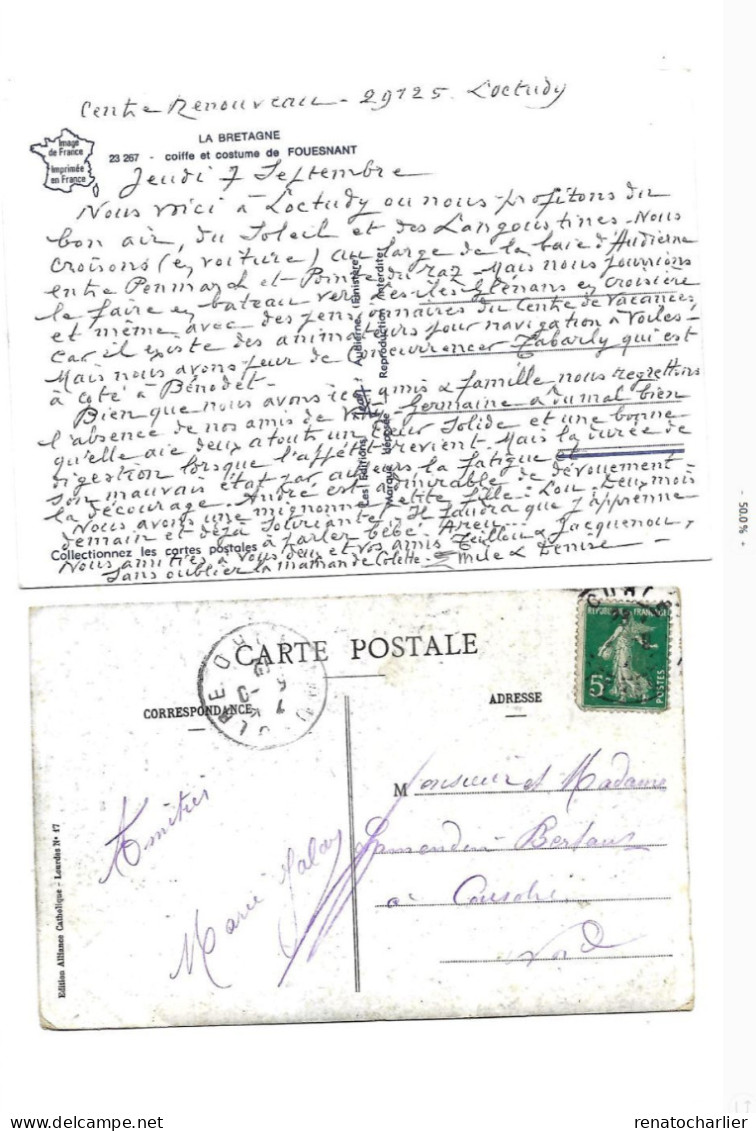 Centre Renouveau - 29125 Loctudy
Image
de France
Imprimée
en France
LA BRETAGNE
23 267 - coiffe et costume de FOUESNANT
Jeudi 7 Septembre
Nous voici à Loctudy ou nous profitons du
bon air, du Soleil et des Langoustines - Nous
croisons (en voiture) au large de la baie d'Audierne
entre Penmarch et Pointe du raz - Mais nous pourrions
le faire en bateau vers les îles Glénans en croisière
et même avec des pensionnaires du Centre de Vacances,
car il existe des animateurs pour navigation à Voiles -
Mais nous avons peur de concurrencer Tabarly qui est
à coté à Bénodet -
Bien que nous avons ici amis & famille, nous regrettons
l'absence de nos amis de Germaine a du mal bien
qu'elle aie deux atouts un cœur Solide et une bonne
digestion lorsque l'appétit revient. Mais la durée de
son mauvais état par ailleurs la fatigue et
la décourage. André est admirable de dévouement -
Nous avons une mignonne petite fille : Lou - Deux mois
demain et déjà Souriante. Il faudra que j'apprenne
à parler bébé. Areu...
Nos amitiés à Vous deux et Vos amis & Jacquenou,
sans oublier la maman de Colette. Emile & Denise -
Les Editions "Jean" Audierne (Finistère)
Marque déposée Reproduction interdite
Collectionnez les cortes postales
CARTE POSTALE
CORRESPONDANCE
ADRESSE
REPUBLIQUE FRANÇAISE
5c
POSTES
Amitiés
Marie
Monsieur et Madame
Bertaux
à Cousolre
Nord
Edition Alliance Catholique - Lourdes N° 17
50,0 %
renatocharlier